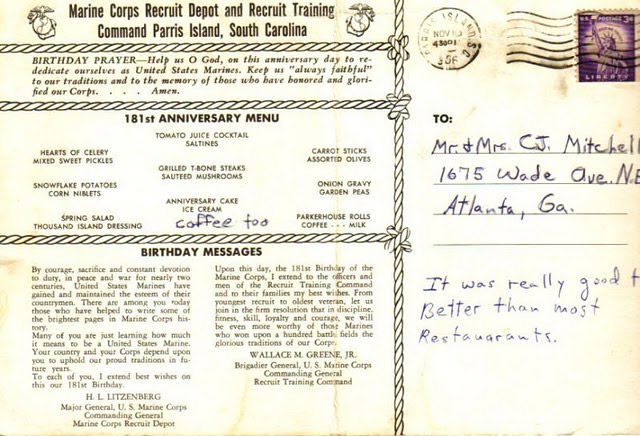 Marine Corps Recruit Depot and Recruit Training
Command Parris Island, South Carolina
BIRTHDAY PRAYER—Help us O God, on this anniversary day to re-
dedicate ourselves as United States Marines. Keep us "always faithful"
to our traditions and to the memory of those who have honored and glori-
fied our Corps. . . . Amen.
181st ANNIVERSARY MENU
TOMATO JUICE COCKTAIL
SALTINES
HEARTS OF CELERY
MIXED SWEET PICKLES
CARROT STICKS
ASSORTED OLIVES
GRILLED T-BONE STEAKS
SAUTEED MUSHROOMS
SNOWFLAKE POTATOES
CORN NIBLETS
ONION GRAVY
GARDEN PEAS
ANNIVERSARY CAKE
ICE CREAM
coffee too
SPRING SALAD
THOUSAND ISLAND DRESSING
PARKERHOUSE ROLLS
COFFEE - - - MILK
BIRTHDAY MESSAGES
By courage, sacrifice and constant devotion
to duty, in peace and war for nearly two
centuries, United States Marines have
gained and maintained the esteem of their
countrymen. There are among you today
those who have helped to write some of
the brightest pages in Marine Corps his-
tory.
Many of you are just learning how much
it means to be a United States Marine.
Your country and your Corps depend upon
you to uphold our proud traditions in fu-
ture years.
To each of you, I extend best wishes on
this our 181st Birthday.
H. L. LITZENBERG
Major General, U. S. Marine Corps
Commanding General
Marine Corps Recruit Depot
Upon this day, the 181st Birthday of the
Marine Corps, I extend to the officers and
men of the Recruit Training Command
and to their families my best wishes. From
youngest recruit to oldest veteran, let us
join in the firm resolution that in discipline,
fitness, skill, loyalty and courage, we will
be even more worthy of those Marines
who won upon a hundred battle fields the
glorious traditions of our Corps.
WALLACE M. GREENE, JR.
Brigadier General, U. S. Marine Corps
Commanding General
Recruit Training Command
PARRIS ISLAND, S.C.
NOV 10
1956
U.S. POSTAGE 3¢
LIBERTY
TO:
Mr. & Mrs. C.J. Mitchell
1675 Wade Ave. N.E
Atlanta, Ga.
It was really good t
Better than most
Restaurants.